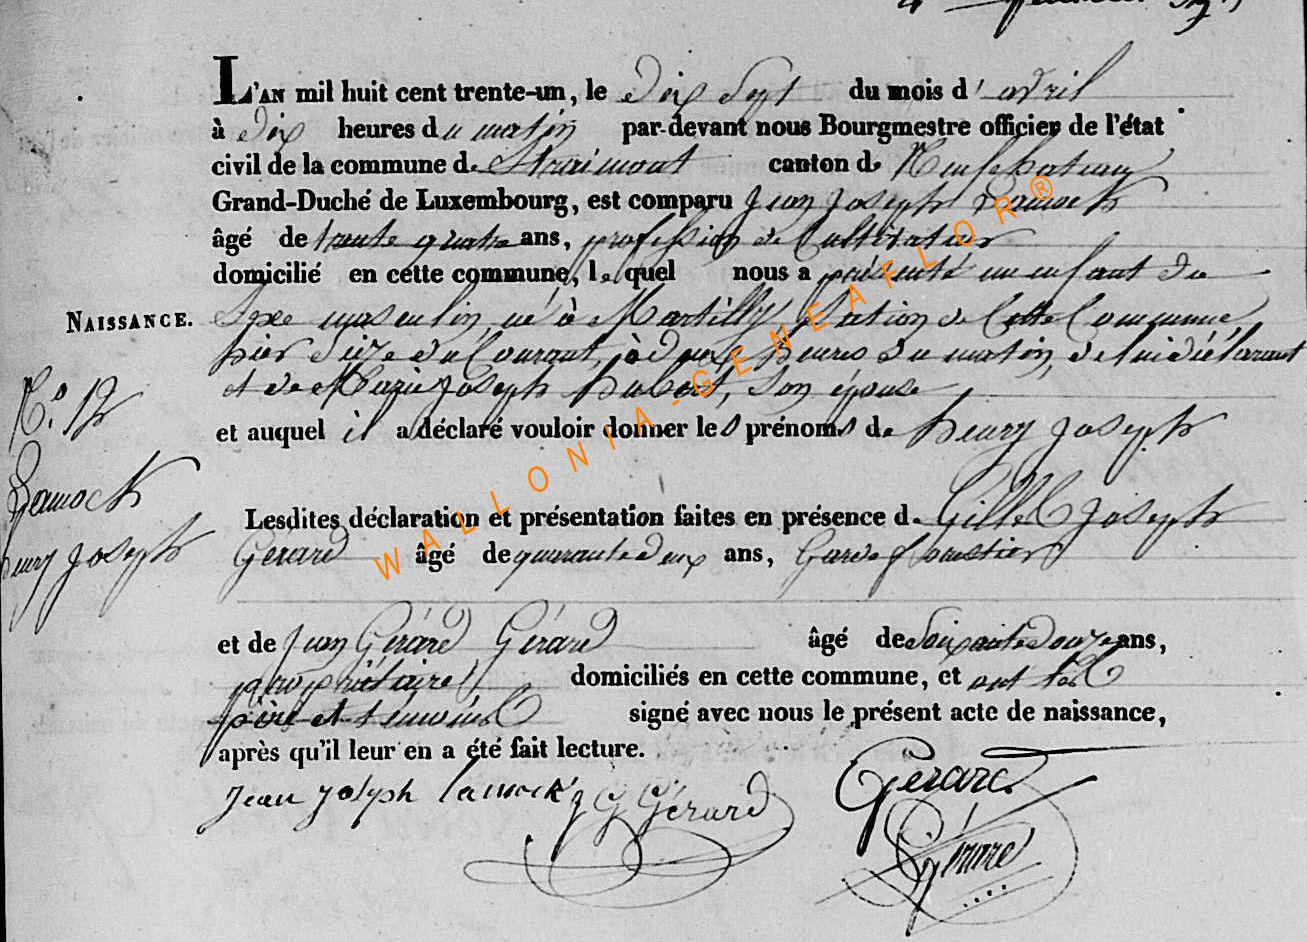 L'AN mil huit cent trente-un, le dix Sept du mois d'avril
à dix heures du matin par-devant nous Bourgmestre officier de l'état
civil de la commune de Straimont canton de Neufchateau
Grand-Duché de Luxembourg, est comparu Jean Joseph Lamock
âgé de trente quatre ans, profession de Cultivateur
domicilié en cette commune, lequel nous a présenté un enfant du
NAISSANCE. Sexe masculin, né à Martilly Section de Cette Commune,
hier Seize du Courant, à deux heures du matin, de lui déclarant
et de Marie Joseph hubert, Son épouse
N.º 12
et auquel il a déclaré vouloir donner les prénoms de henry Joseph
Lamock
henry Joseph
Lesdites déclaration et présentation faites en présence de Gilles Joseph
Gérard âgé de quarante deux ans, Garde forestier
et de Jean Gérard Gérard âgé de Soixante douze ans,
propriétaire domiciliés en cette commune, et ont les
père et témoins signé avec nous le présent acte de naissance,
après qu'il leur en a été fait lecture.
Jean Joseph lamock J G Gérard Gérard
Gérard
WALLONIA-GENEAFLOR®